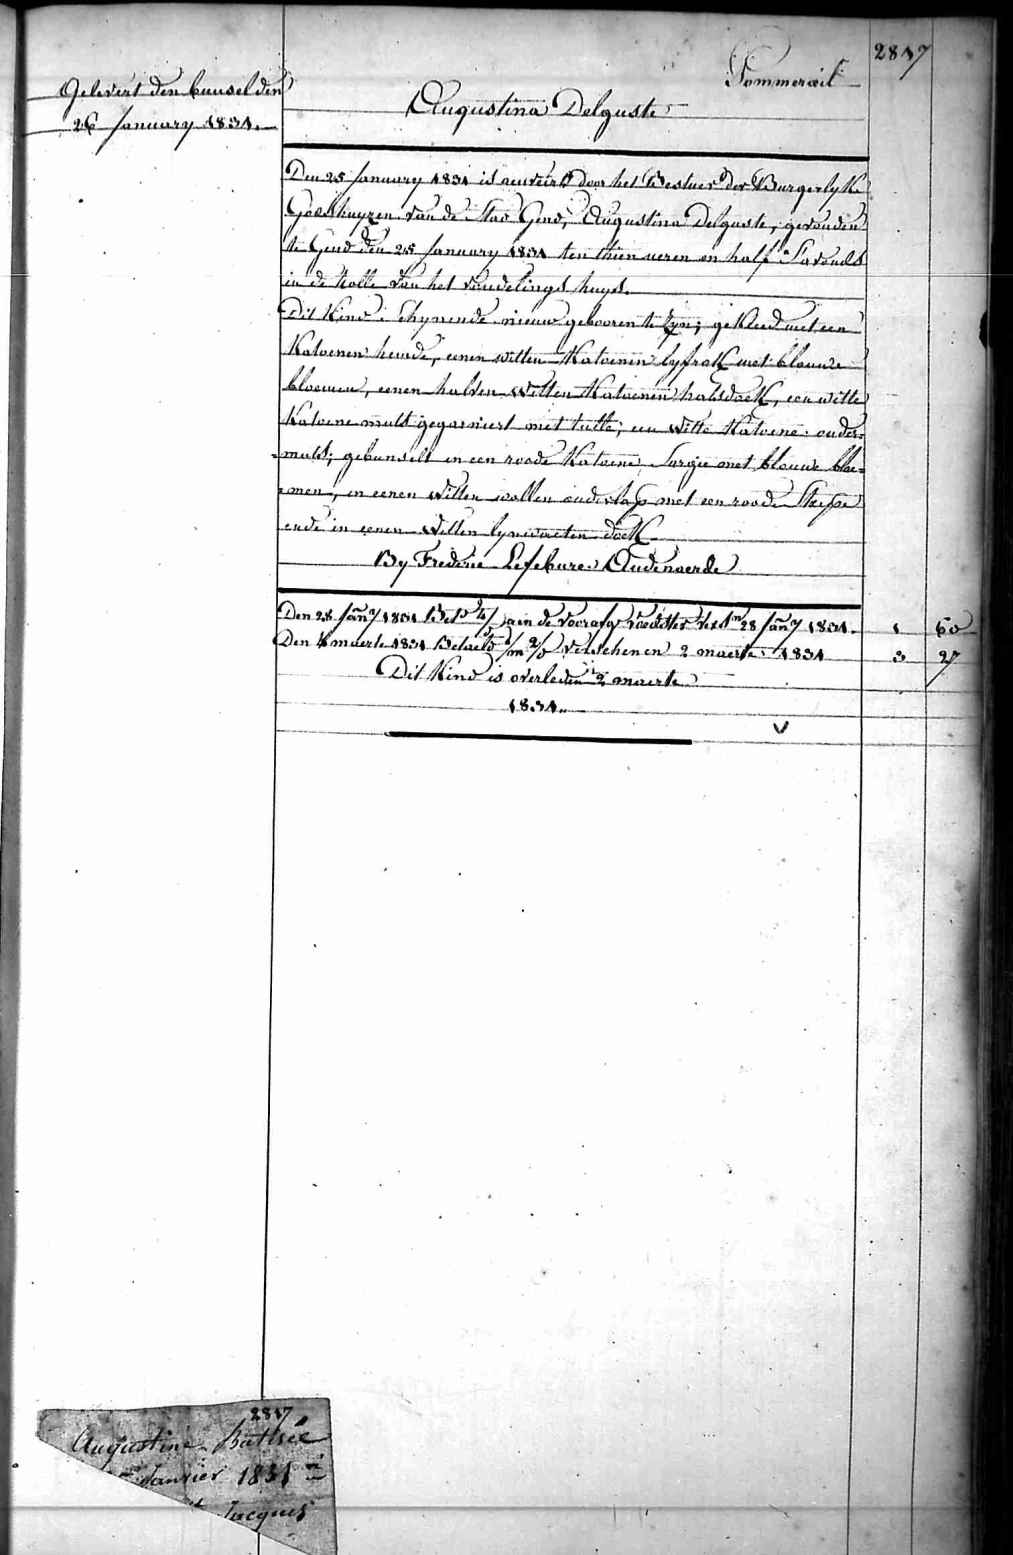 2817
Sommerœil
Gelevért den bunsel den
26 January 1831.
Augustina Delguste
Den 25 January 1831 is aenveird door het Bestuer der Burgerlyke
Godshuyzen van de Stad Gend, Augustina Delguste, gevonden
te Gend den 25 January 1831 ten thien ueren en half 's avonds
in de Rolle van het vondelings huys.
Dit Kind schynende nieuw gebooren te zyn; gekleed met een
Katoenen hemde, eenen witten Katoenen lyfrok met blauwe
bloemen, eenen halven witten Katoenen halsdoek, een witte
Katoene muts gegarniert met tulle, een witte Katoene onder=
muts; gebunselt in een roode Katoene Sargie met blauwe bloe=
=men, in eenen witten wollen onderlap met een roode Stréépe
ende in eenen witten lynwaeten doek
By Frederic Lefebure Audenaerde
Den 28 Jany 1831 Bet aen de voorafg. 28 Jany 1831. 1 60
Den 4 maerte 1831 Betaeld verschenen 2 maerte 1831 3 27
Dit Kind is overleden 2 maerte
1831.
2817
Augustine Bathée
Janvier 1831
Jacques